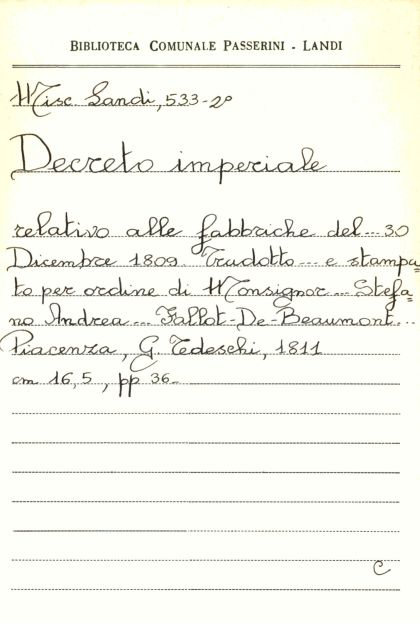 BIBLIOTECA COMUNALE PASSERINI - LANDI
Misc. Landi, 533-2º
Decreto imperiale
relativo alle fabbriche del... 30
Dicembre 1809. Tradotto... e stampa=
to per ordine di Monsignor... Stefa=
no Andrea... Fallot-De-Beaumont...
Piacenza, G. Tedeschi, 1811
cm 16,5, pp 36-
C